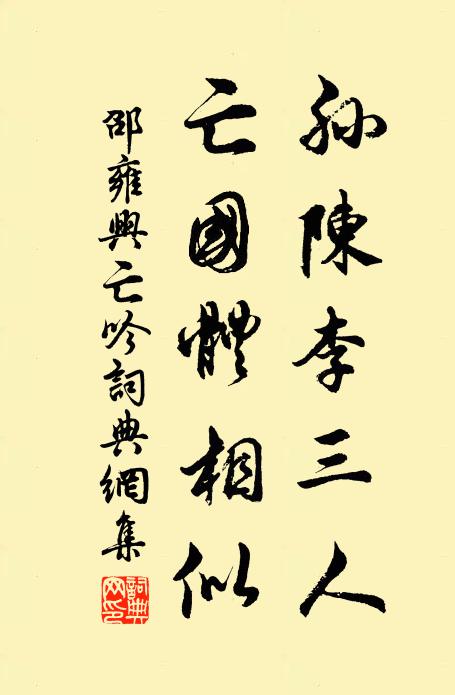 孫陳李三人
亡國體相似
邵雍興亡吟詞典網集
詞典網印